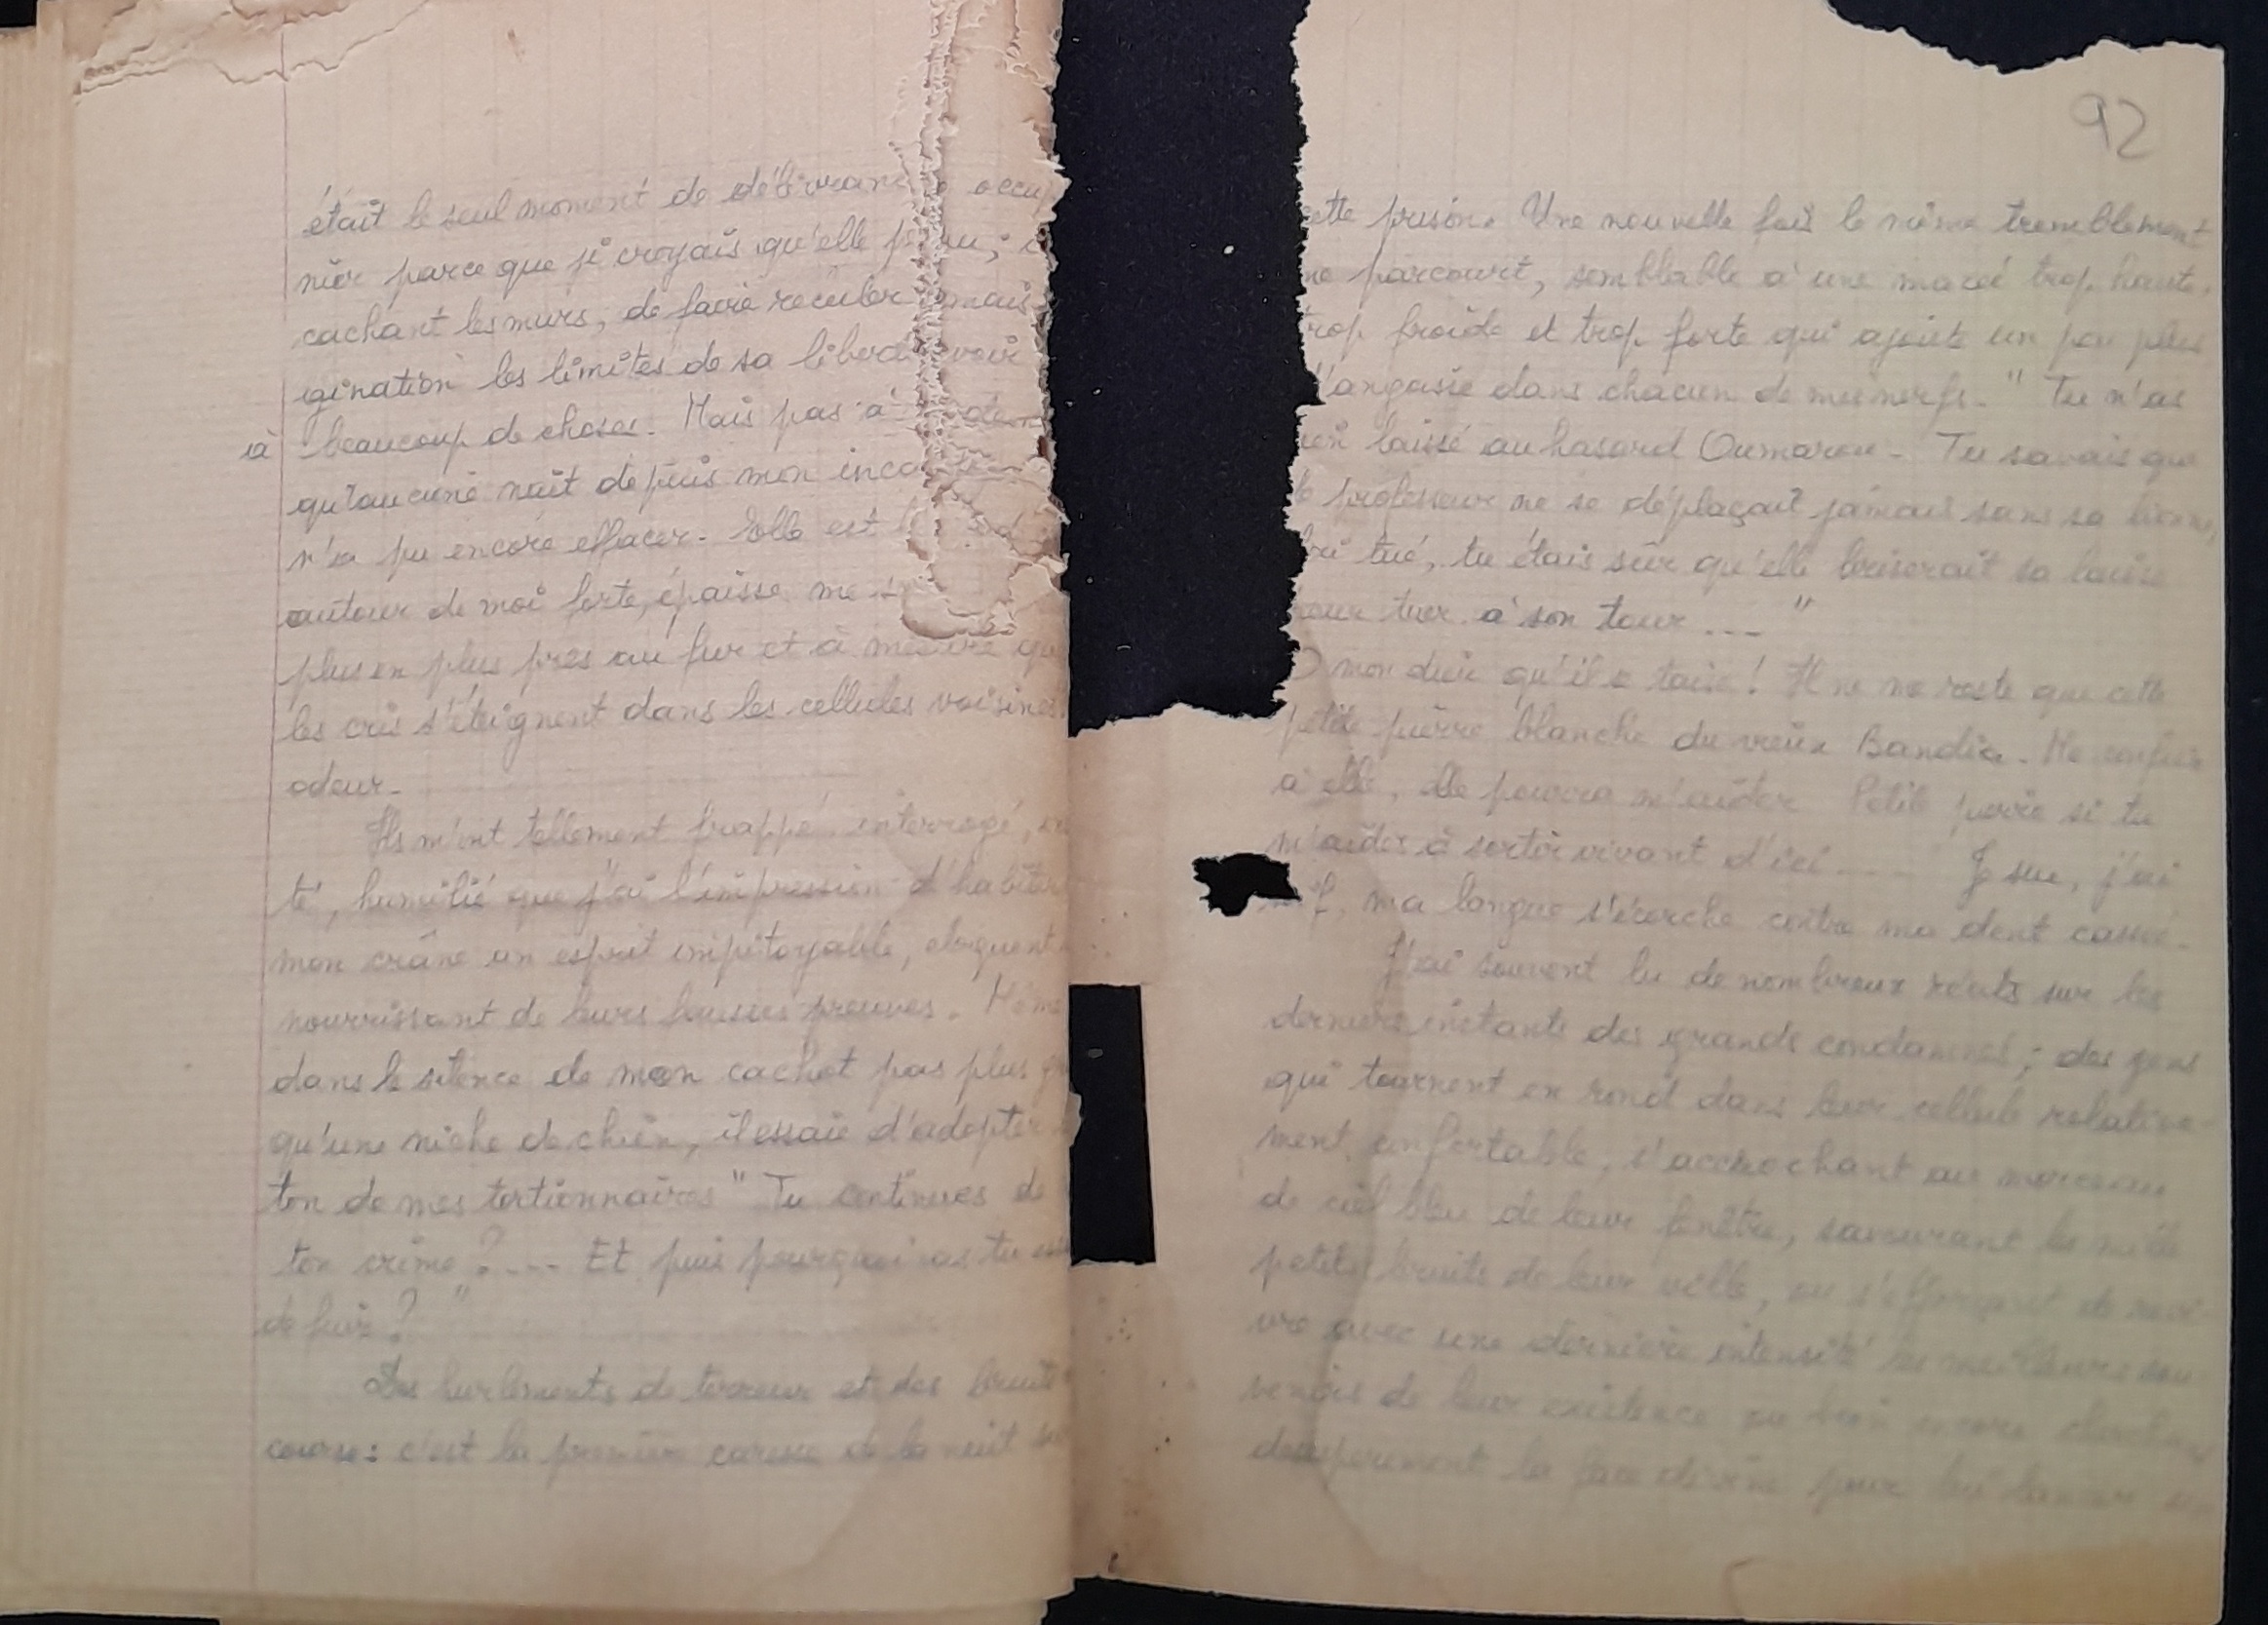 était le seul moment de délivran
nier parce que je croyais qu'elle
cachant les murs, de faire reculer mais
gination les limites de sa liber voir
à beaucoup de choses. Mais pas à de
qu'aucune nuit depuis mon inca
n'a pu encore effacer. Elle est
autour de moi forte, épaisse me s
plus en plus près au fur et à mesure qu
les cris s'éteignent dans les cellules voisines
odeur.
Ils m'ont tellement frappé interrogé,
té, humilié que j'ai l'impression d'habiter
mon crâne un esprit impitoyable, eloquent
nourrissant de leurs fausses preuves. Même
dans le silence de mon cachot pas plus
qu'une niche de chien, il essaie d'adopter
ton de mes tortionnaires " Tu continues de
ton crime ? ---- Et puis pourquoi as tu
de fuir ? "
Des hurlements de terreur et des bruits
course : c'est la première caresse de la nuit
92
ette prison. Une nouvelle fois le même tremblement
me parcourt, semblable à une marée trop haute.
trop froide et trop forte qui ajoute un peu plus
d'angoisse dans chacun de mes nerfs. " Tu n'as
ien laissé au hasard Oumarou - Tu savais que
le professeur ne se déplaçait jamais sans sa
lui tué, tu étais sûr qu'elle briserait sa laisse
pour tuer à son tour --- "
O mon dieu qu'il se taise ! Il ne me reste que cette
petite pierre blanche du vieux Bandia. Me
à elle, elle pourra m'aider Petite pierre si tu
m'aides à sortir vivant d'ici ---- Je sue, j'ai
if, ma langue s'écorche contre ma dent cassée.
J'ai souvent lu de nombreux récits sur les
derniers instants des grands condamnés ; des gens
qui tournent en rond dans leur cellule relative-
ment confortable, s'accrochant au morceau
de ciel bleu de leur fenêtre, savourant les mille
petits bruits de leur ville, ou s'efforçant de revi-
vre avec une dernière intensité les meilleurs sou
venirs de leur existence ou bien encore cherchant
desesperement la face divine pour lui lancer